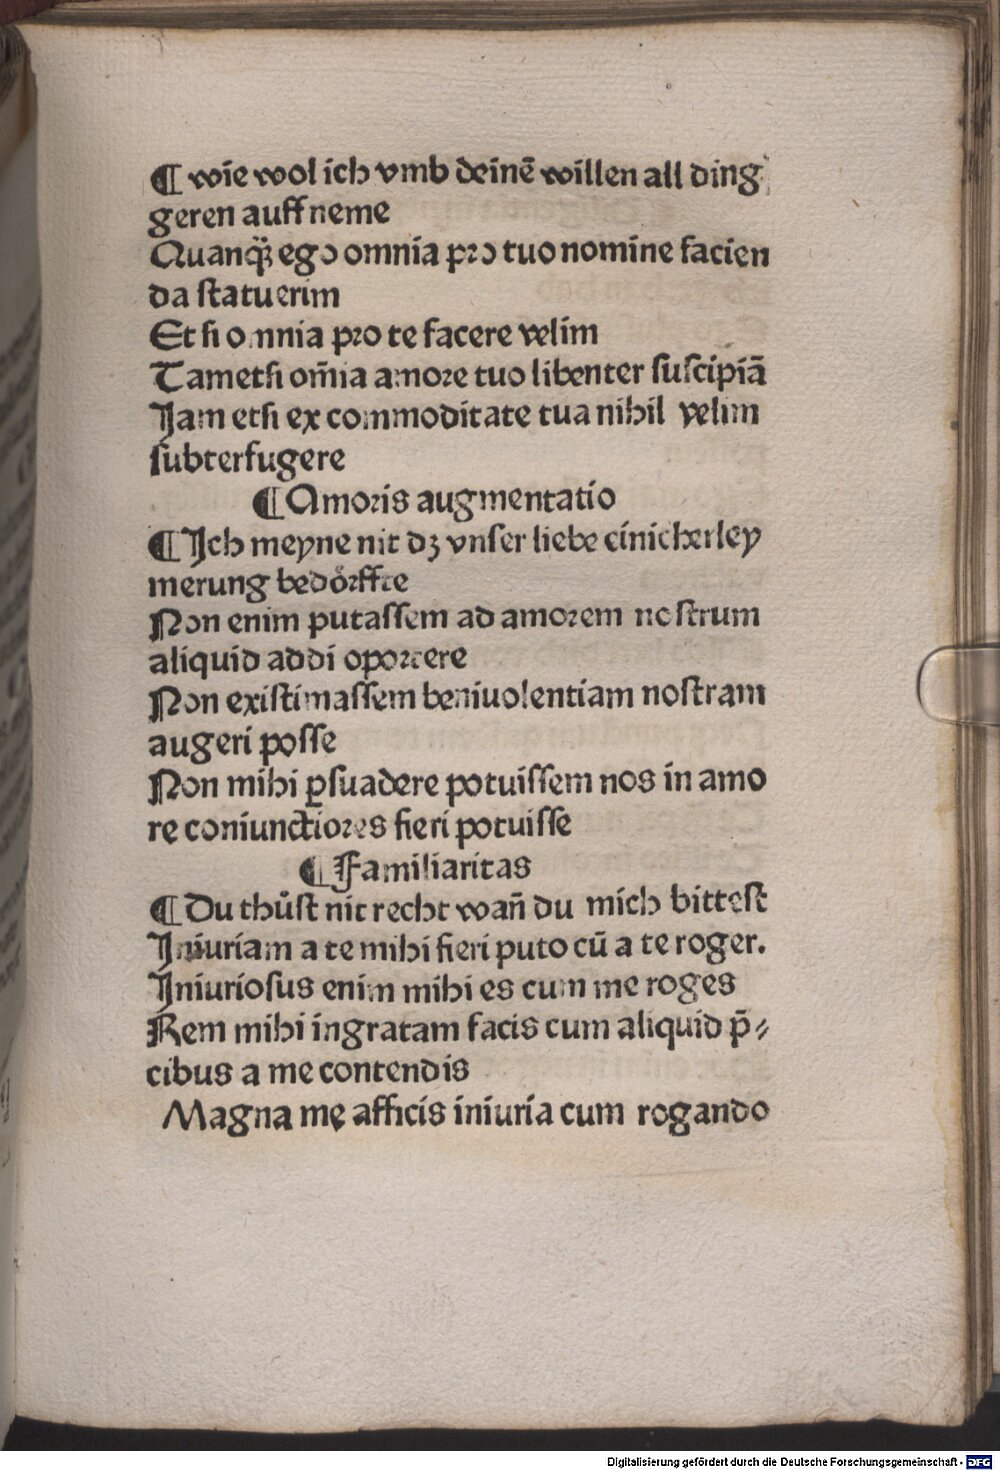 ¶ wie wol ich vmb deinē willen all ding
geren auff neme
Quanq̄ȝ ego omnia pro tuo nomine facien
da statuerim
Et si omnia pro te facere velim
Tametsi om̄ia amore tuo libenter suscipiā
Jam etsi ex commoditate tua nihil velim
subterfugere
¶ Amoris augmentatio
¶ Jch meyne nit dʒ vnser liebe einicherley
merung bedoͤrffte
Non enim putassem ad amorem nostrum
aliquid addi oportere
Non existimassem beniuolentiam nostram
augeri posse
Non mihi ꝑsuadere potuissem nos in amo
rę coniunctiores fieri potuisse
¶ Familiaritas
¶ Du thuͦst nit recht wan̄ du mich bittest
Iniuriam a te mihi fieri puto cū a te roger.
Jniuriosus enim mihi es cum me roges
Rem mihi ingratam facis cum aliquid p̄⸗
cibus a me contendis
Magna mę afficis iniuria cum rogando
Digitalisierung gefördert durch die Deutsche Forschungsgemeinschaft - DFG